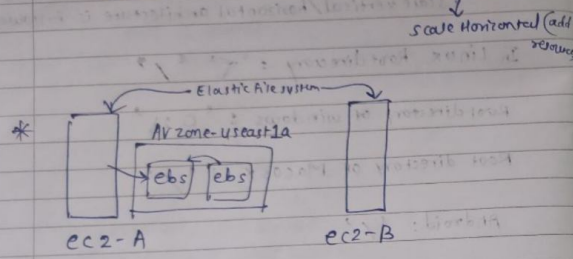 Scale Horizontal (add
resources
Elastic file system
* AV zone-useast1a
ebs ebs
ec2-A ec2-B